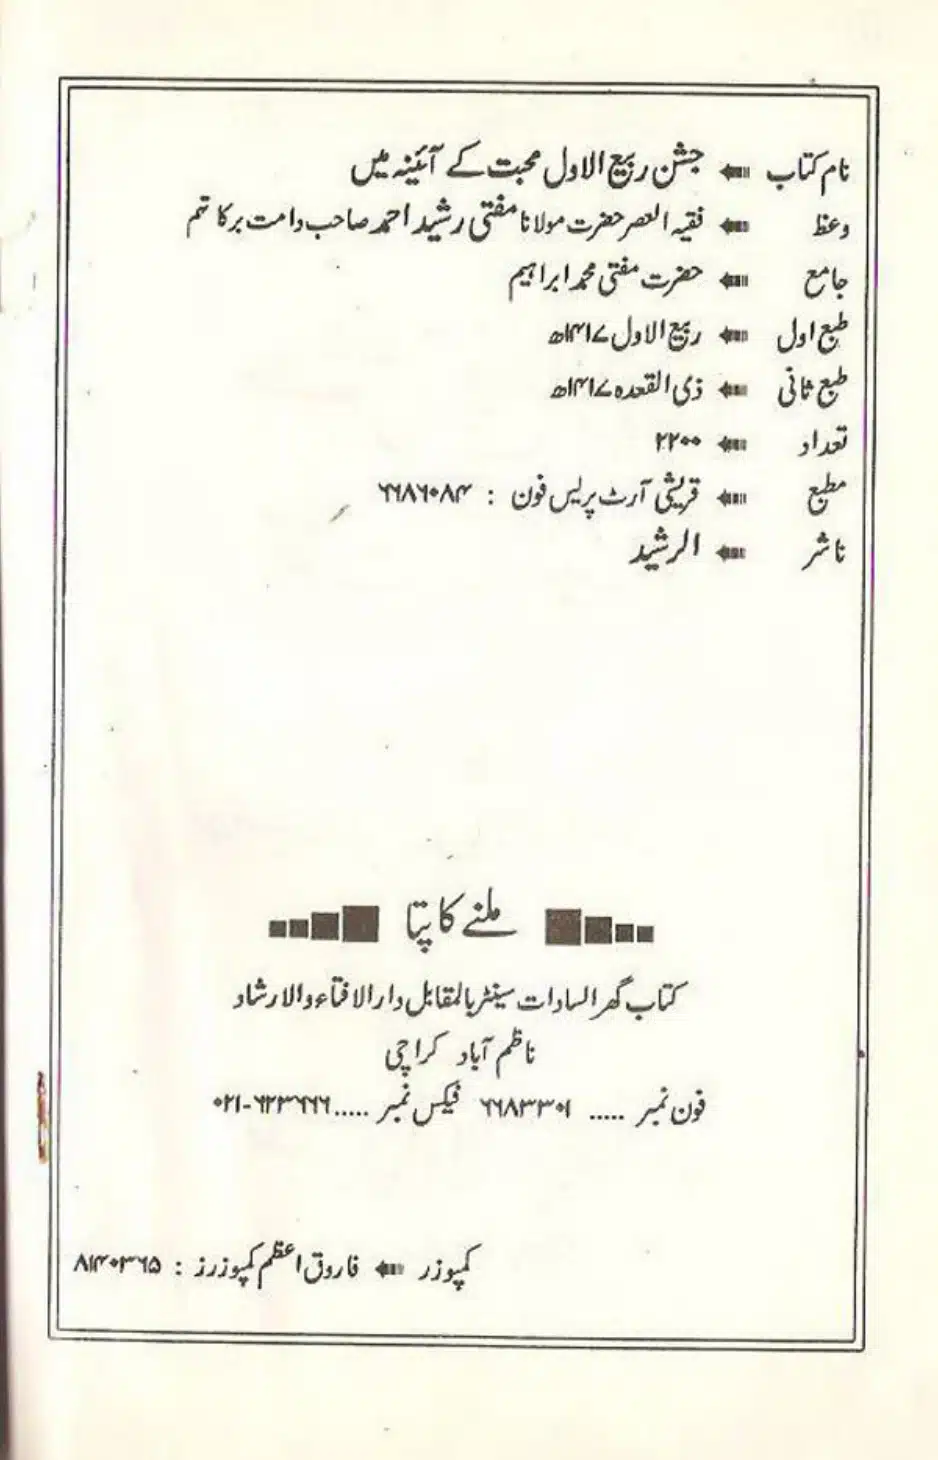 نام کتاب جشن ربیع الاول محبت کے آئینہ میں
وعظ فقیہ العصر حضرت مولانا مفتی رشید احمد صاحب دامت برکاتہم
جامع حضرت مفتی محمد ابراہیم
طبع اول ربیع الاول ۱۴۱۷ھ
طبع ثانی ذی القعدہ ۱۴۱۷ھ
تعداد ۲۲۰۰
مطبع قریشی آرٹ پریس فون : ۶۶۸۶۰۸۴
ناشر الرشید
ملنے کا پتا
کتاب گھر السادات سینٹر بالمقابل دارالافتاء والارشاد
ناظم آباد کراچی
فون نمبر ..... ۶۶۸۳۳۰۱ فیکس نمبر .....۰۲۱-۶۲۳۶۶۶
کمپوزر فاروق اعظم کمپوزرز : ۸۱۴۰۳۶۵